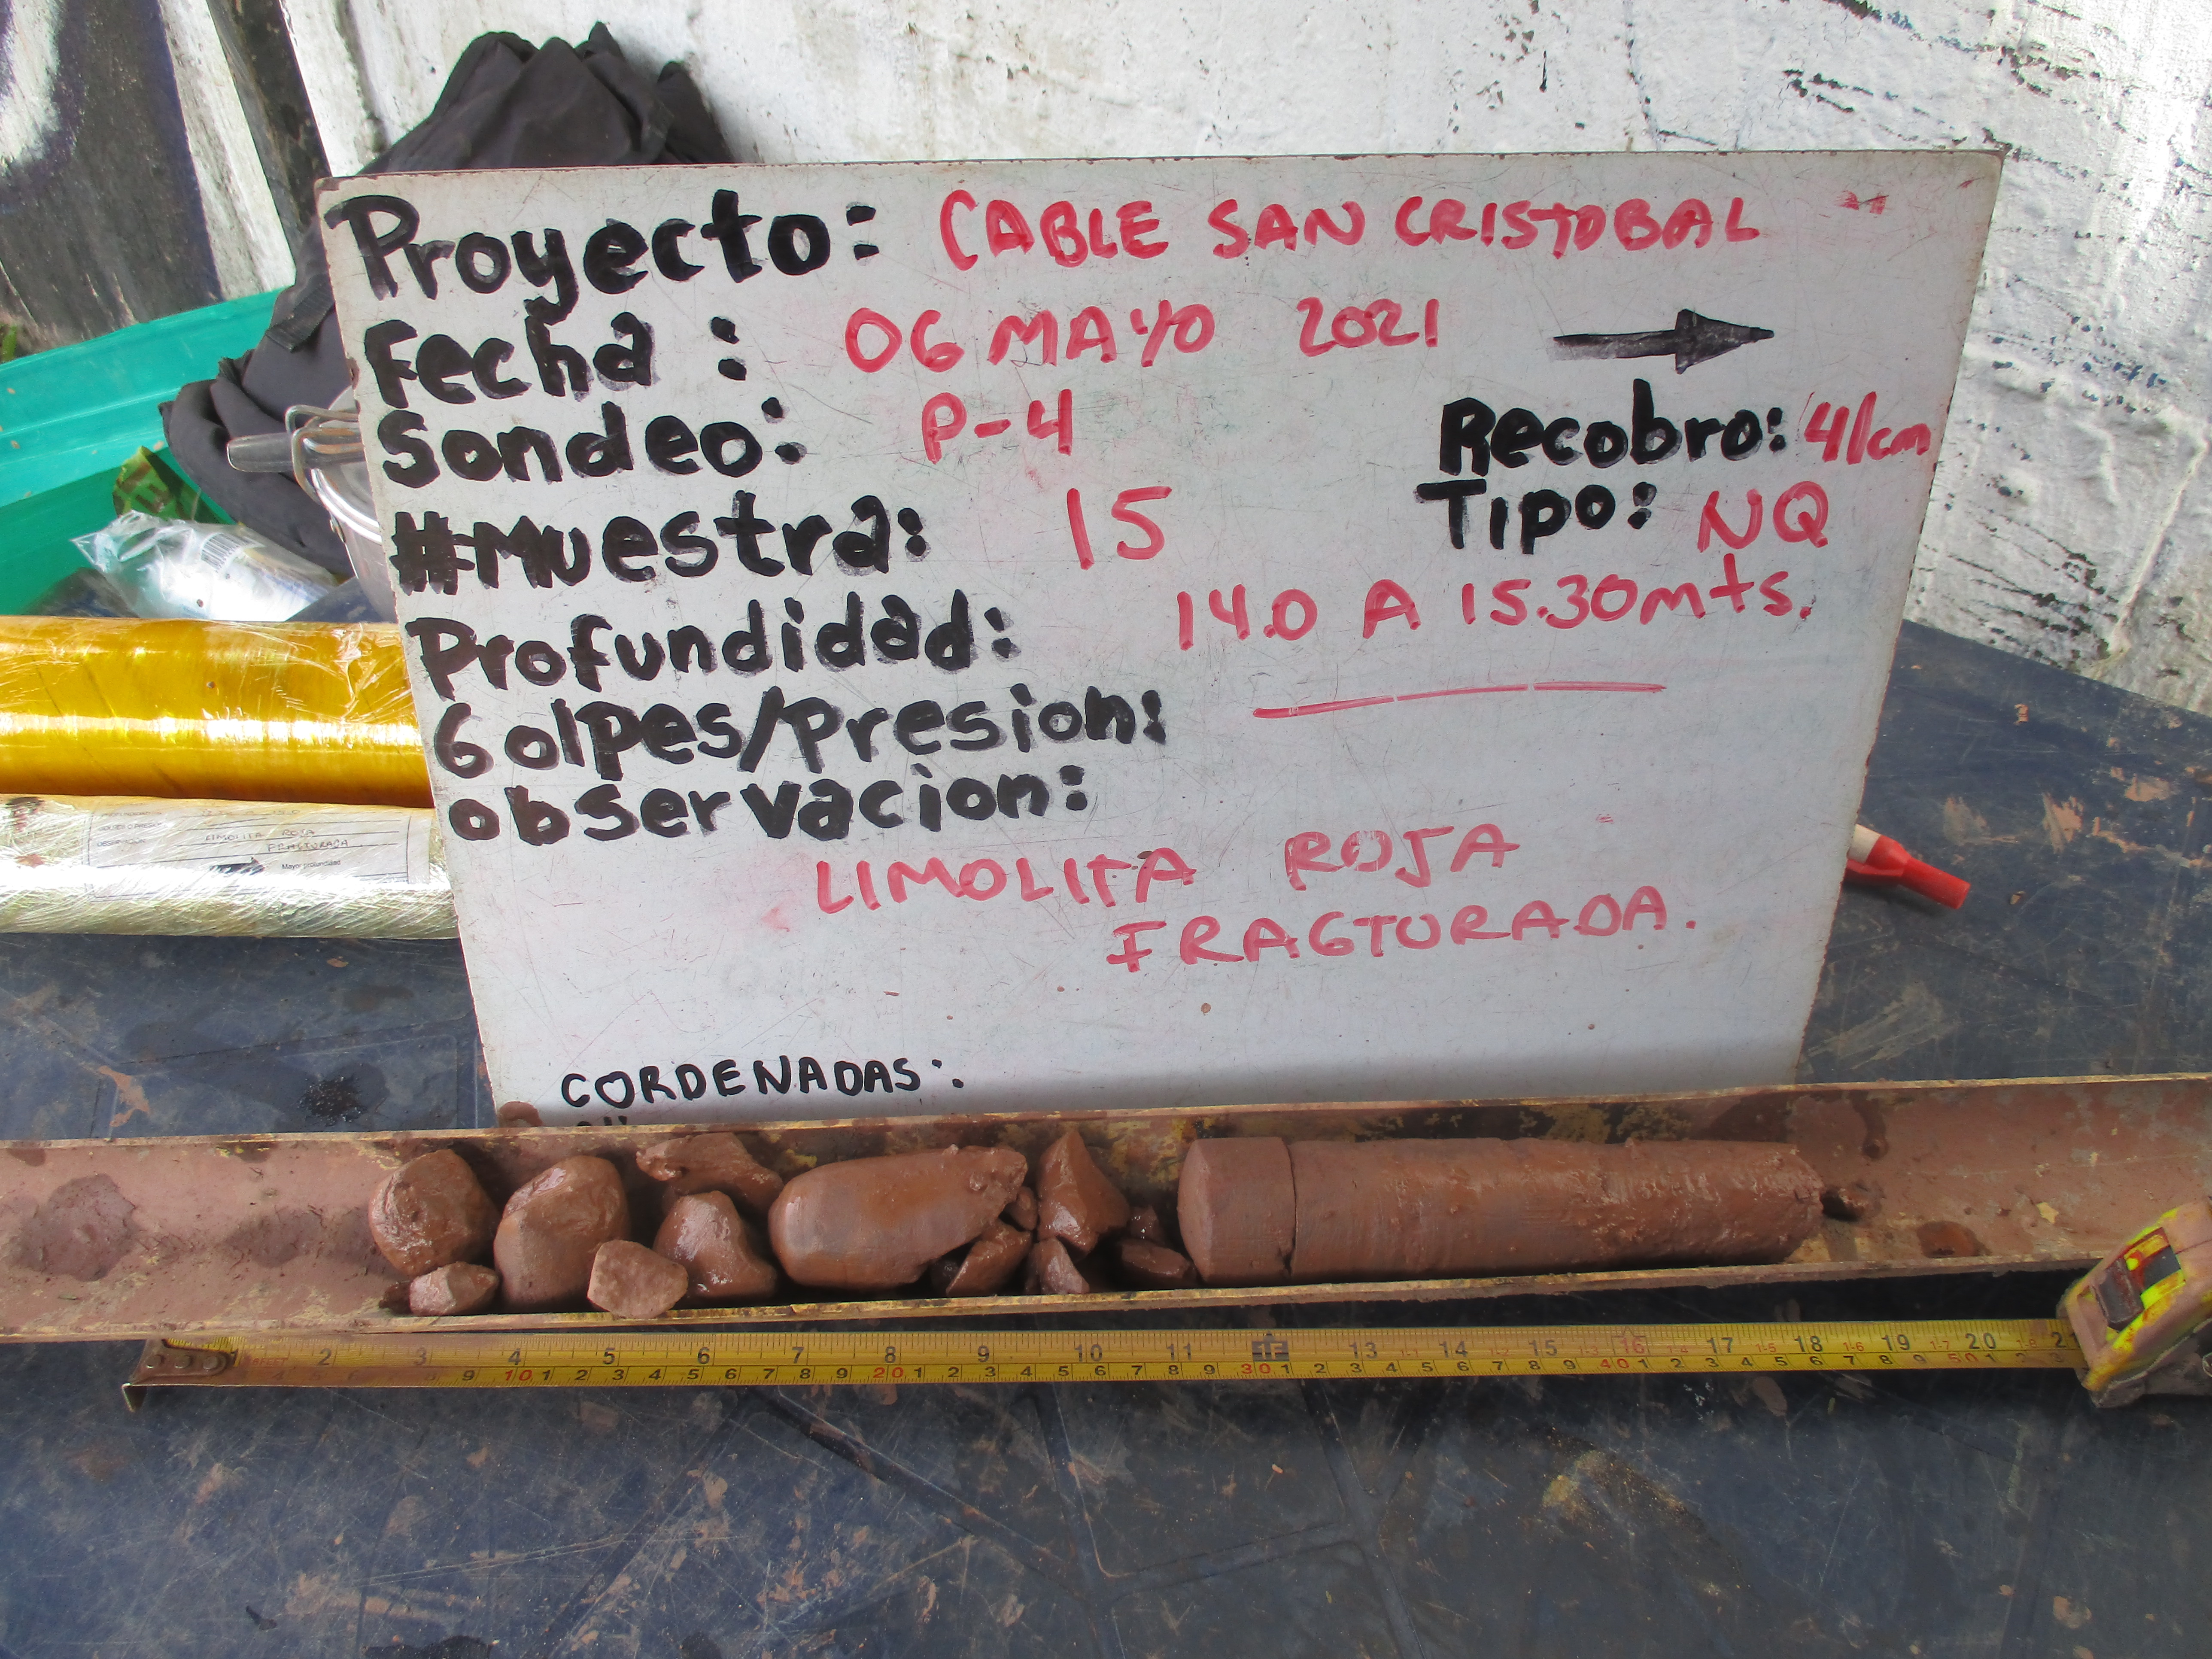 Proyecto: CABLE SAN CRISTOBAL
Fecha : 06 MAYO 2021
Sondeo: P-4 Recobro: 41cm
#Muestra: 15 Tipo: NQ
Profundidad: 14.0 A 15.30mts.
Golpes/Presion:
observacion:
LIMOLITA ROJA
FRAGTURADA.
CORDENADAS:
LIMOLITA ROJA
FRACTURADA
Mayor profundidad
1 2 3 4 5 6 7 8 9 10 11 13 14 15 16 17 18 19 20 21
9 10 1 2 3 4 5 6 7 8 9 20 1 2 3 4 5 6 7 8 9 30 1 2 3 4 5 6 7 8 9 40 1 2 3 4 5 6 7 8 9 50 1 2